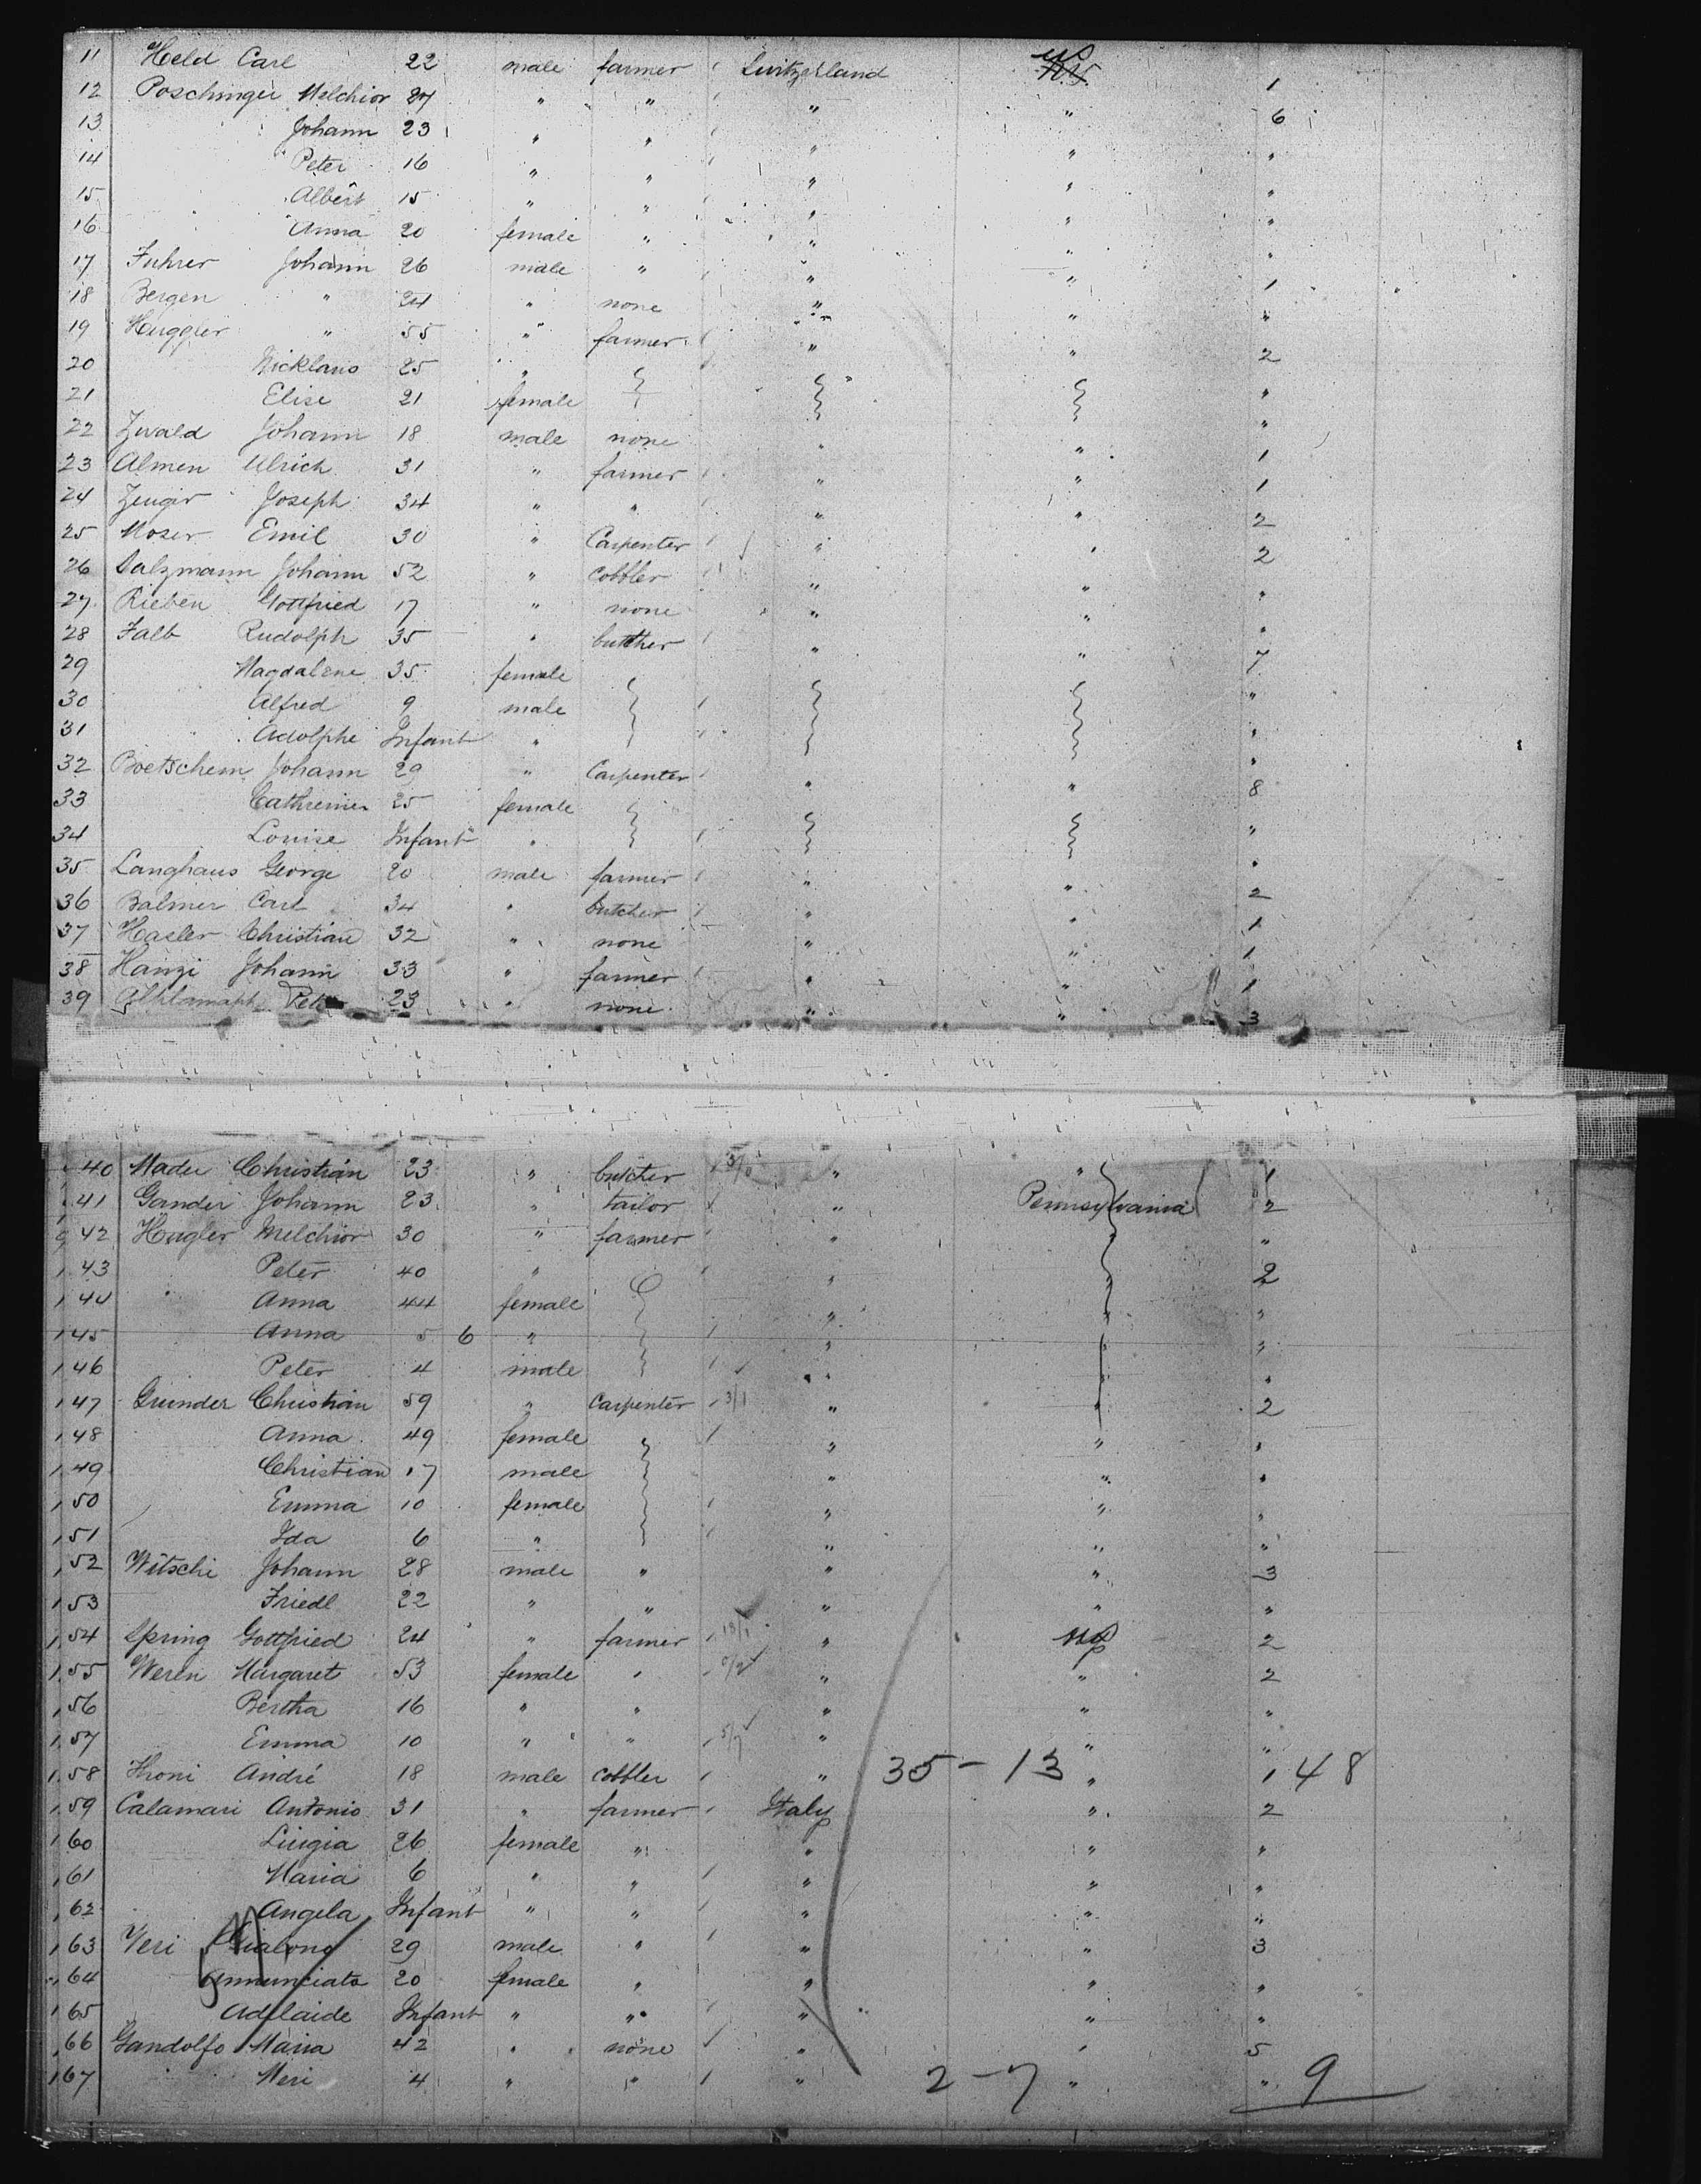 11 Held Carl 22 male farmer Switzerland
12 Poschinger Melchior 27 " " " " 1
13 Johann 23 " " " " 6
14 Peter 16 " " " " "
15 Albert 15 " " " " "
16 Anna 20 female " " " "
17 Fuhrer Johann 26 male " " " "
18 Bergen " 24 " none " " 1
19 Huggler " 55 " farmer " " "
20 Nicklaus 25 " " 2
21 Elise 21 female "
22 Zwald Johann 18 male none " " "
23 Almen Ulrich 31 " farmer " " 1
24 Zenger Joseph 34 " " " " 1
25 Moser Emil 30 " Carpenter " " 2
26 Salzmann Johann 52 " cobbler " " 2
27 Rieben Gottfried 17 " none " " "
28 Falb Rudolph 35 " butcher " " "
29 Magdalene 35 female 7
30 Alfred 9 male "
31 Adolphe Infant " "
32 Boetschem Johann 29 " Carpenter " " "
33 25 female 8
34 Louise Infant " "
35 Langhaus George 20 male farmer " " "
36 Balmer Carl 34 " butcher " " 2
37 Hasler Christian 32 " none " " 1
38 Hanzi Johann 33 " farmer " " 1
39 Peter 23 " none " " 1
3
40 Mader Christian 23 " butcher 3/0 " " 1
41 Gander Johann 23 " tailor " Pennsylvania 2
42 Hugler Melchior 30 " farmer " " "
1 43 Peter 40 " " " 2
1 44 Anna 44 female " " "
1 45 Anna 5 6 " " "
1 46 Peter 4 male " "
1 47 Grunder Christian 59 " Carpenter 3/1 " " 2
1 48 Anna 49 female " " "
1 49 Christian 17 male " " "
1 50 Emma 10 female " " "
1 51 Ida 6 " " " "
1 52 Witschi Johann 28 male " " " 3
1 53 Friedl 22 " " " " "
1 54 Spring Gottfried 24 " farmer 13/1 " 2
1 55 Weren Margaret 53 female " " " 2
1 56 Bertha 16 " " " " "
1 57 Emma 10 " " 5/7 " " "
1 58 André 18 male cobbler " 35 - 13 " 1 48
1 59 Calamari Antonio 31 " farmer Italy " 2
1 60 Luigia 26 female " " " "
1 61 Maria 6 " " " " "
1 62 Angela Infant " " " " "
1 63 Veri 29 male " " " 3
1 64 Annunciata 20 female " " " "
1 65 Adelaide Infant " " " " "
1 66 Gandolfo Maria 42 " none " " 5
1 67 Meri 4 " " " 2 - 7 " " 9